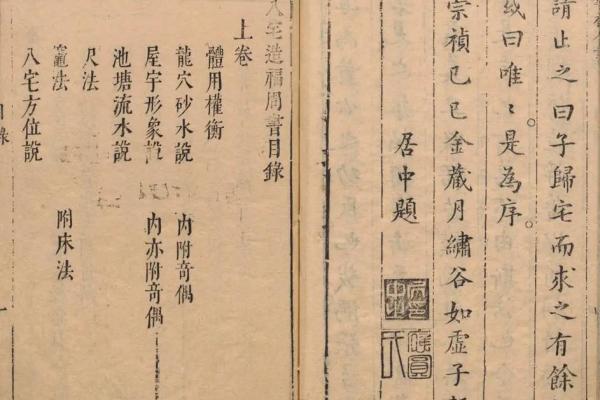 請止之曰子歸宅而求之有餘
或曰唯〻。是為序。
崇禎己巳金藏月繡谷如虛子
居中題
八宅造福周書目錄
上卷
體用權衡
龍穴砂水說 內附奇偶
屋宇形象說 內亦附奇偶
池塘流水說
尺法
竈法 附床法
八宅方位說
目錄
一